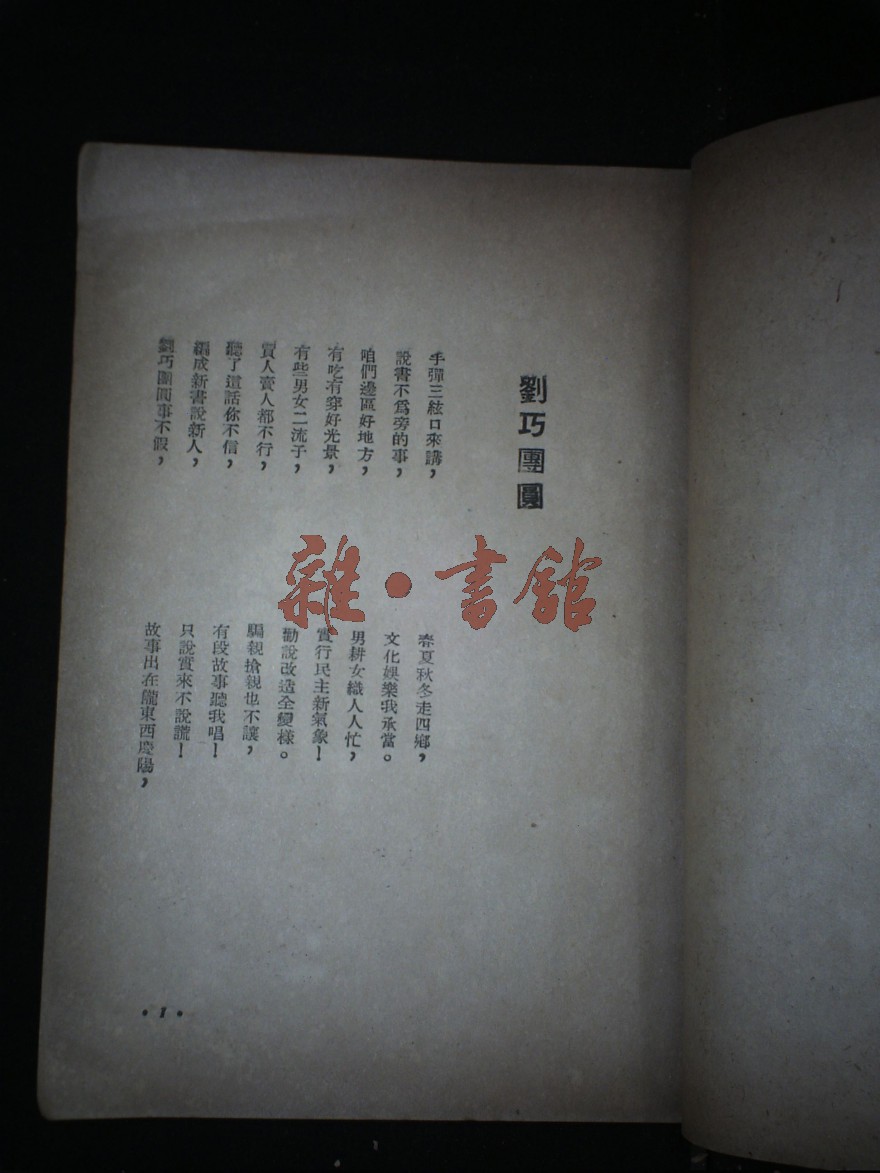 劉巧團圓
手彈三絃口來講，
春夏秋冬走四鄉，
說書不爲旁的事，
文化娛樂我承當。
咱們邊區好地方，
男耕女織人人忙，
有吃有穿好光景，
實行民主新氣象！
有些男女二流子，
勸說改造全變樣。
買人賣人都不行，
騙親搶親也不讓，
聽了這話你不信，
有段故事聽我唱！
編成新書說新人，
只說實來不說謊！
劉巧團圓事不假，
故事出在隴東西慶陽，
• 1 •
雜•書館